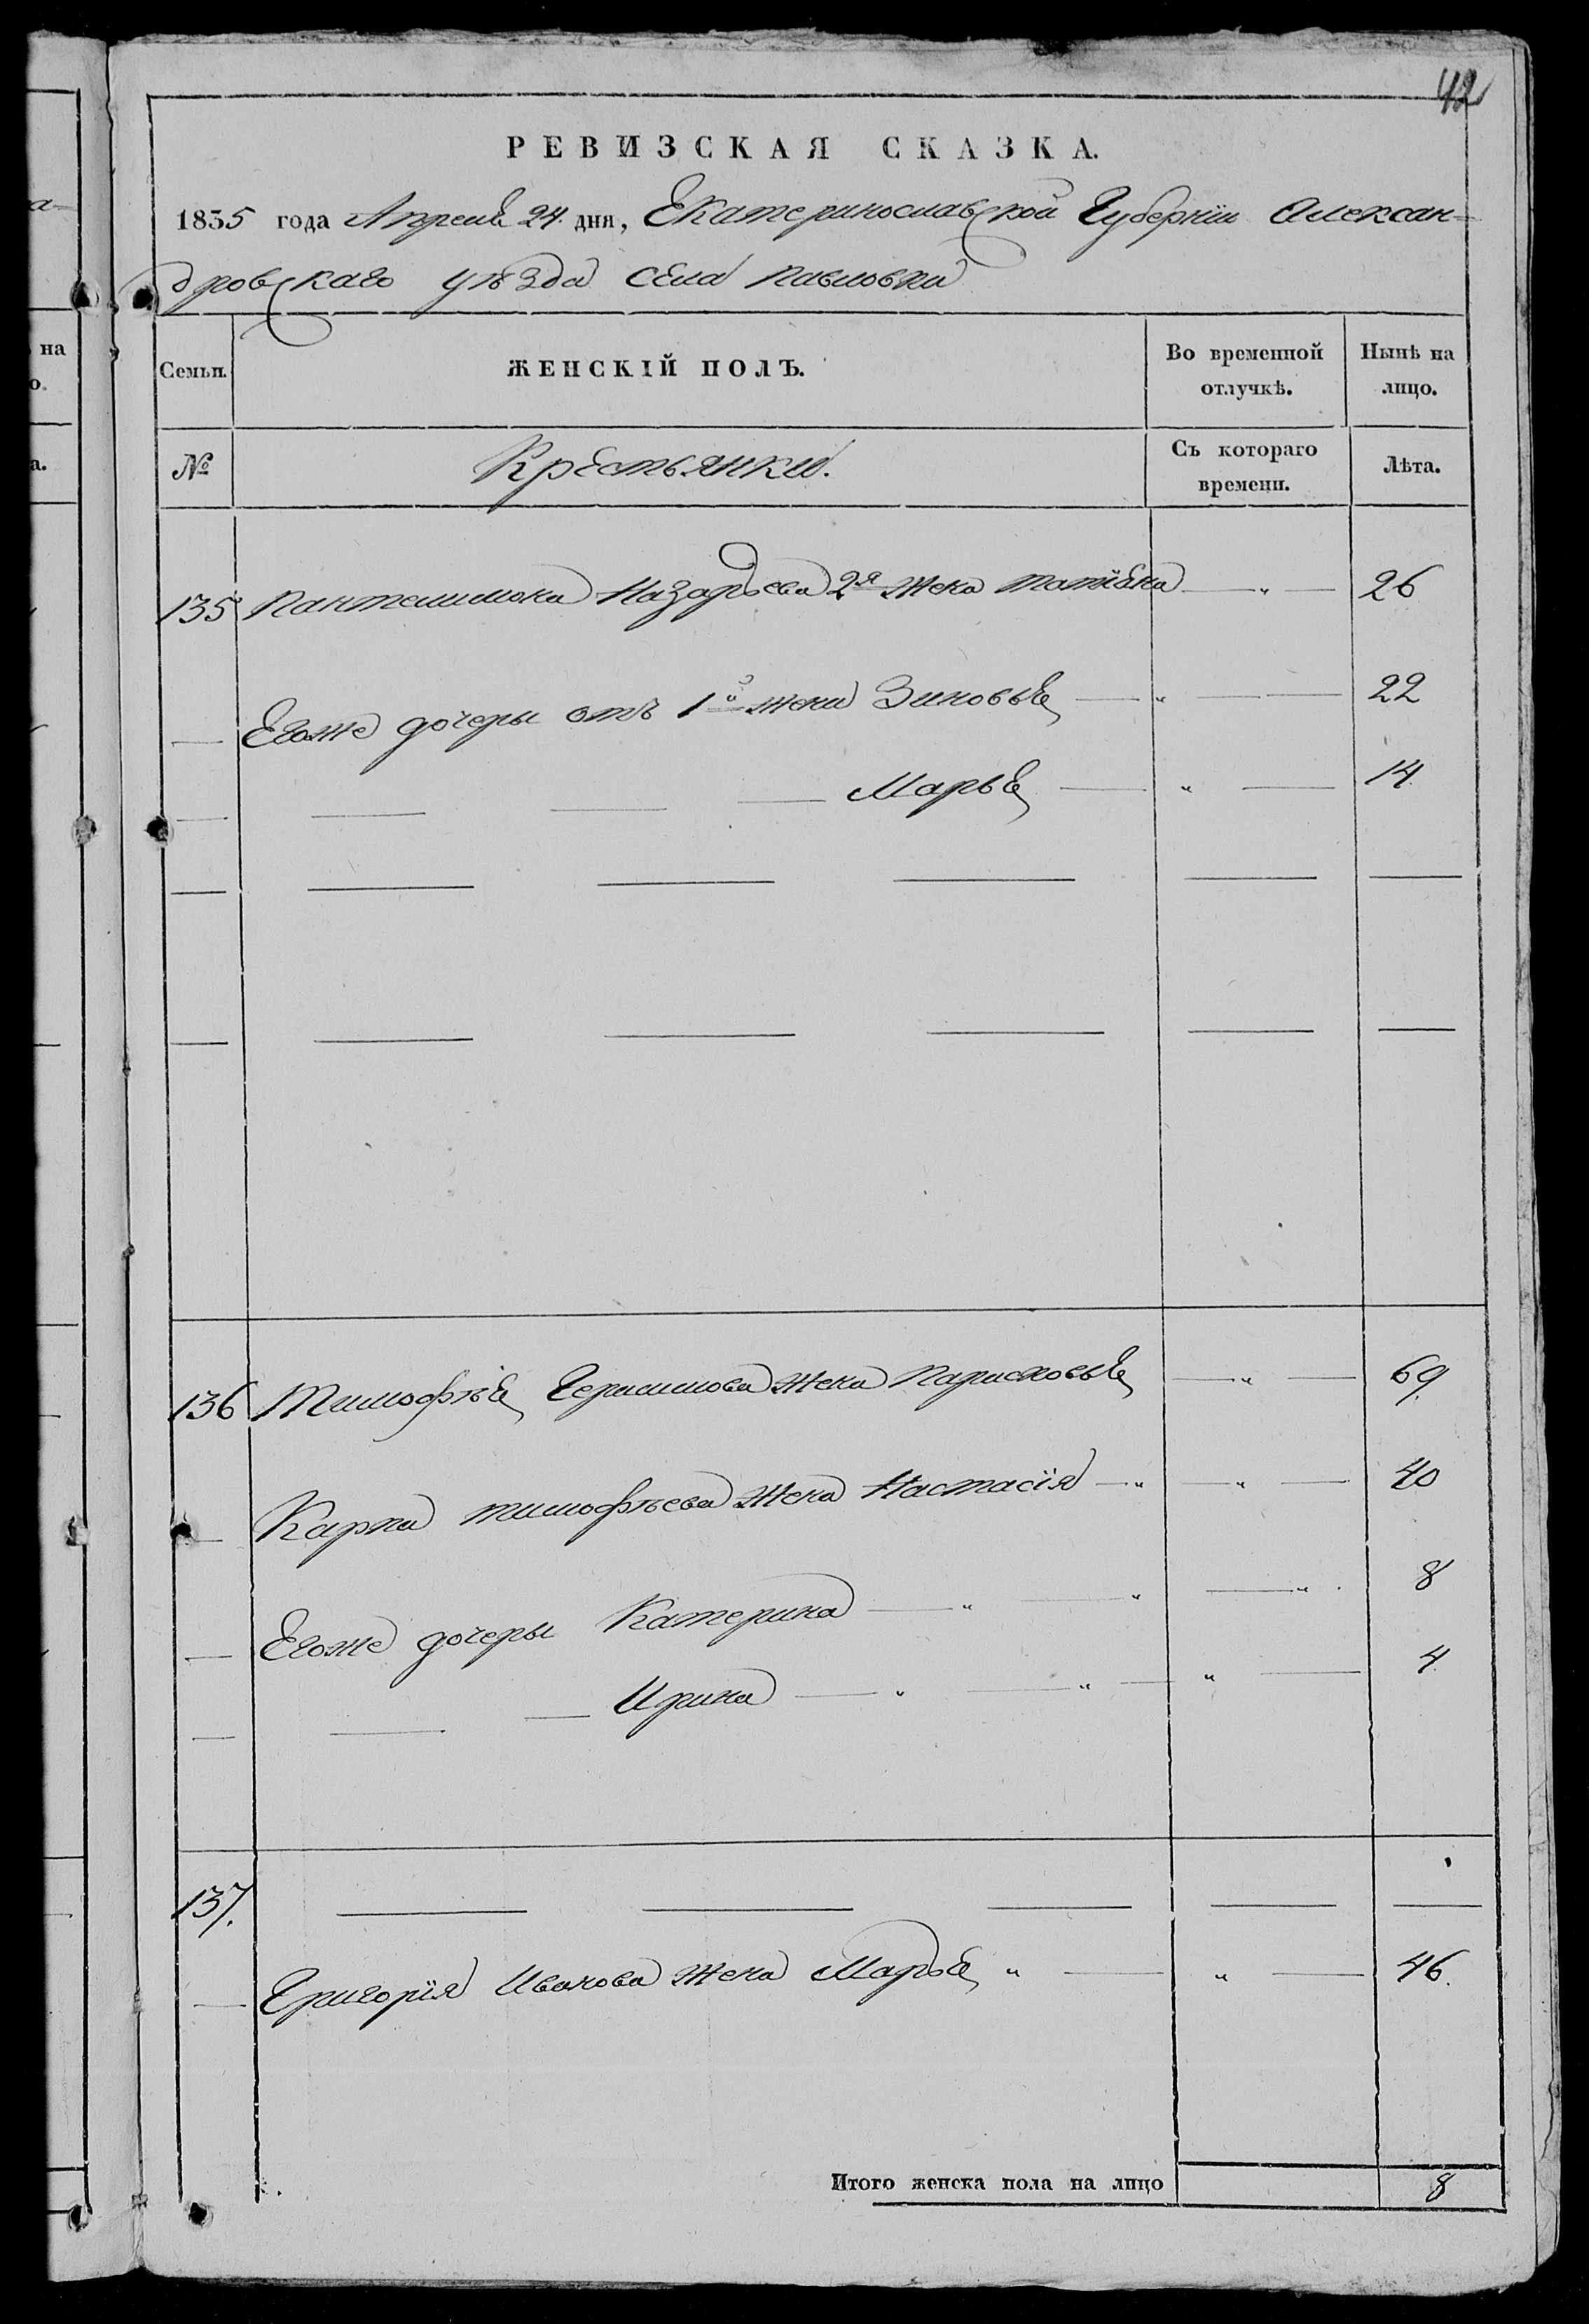 42
РЕВИЗСКАЯ СКАЗКА.
1835 года Апреля 24. дня, Екатеринославской Губерніи Алексан-
дровскаго уѣзда села Павловки
Семьи. ЖЕНСКІЙ ПОЛЪ. Во временной отлучкѣ. Нынѣ на лицо.
№ Крестьянки. Съ котораго времени. Лѣта.
135 Пантелимона Назарьева 2я жена Татіана — " — 26
— Егоже дочеры отъ 1й жены Зиновья — " — — 22
— — — — Марья — " — 14.
— — — — — —
— — — — — —
136 Тимофѣя Герасимова жена Парасковья — " — 69.
— Карпа Тимофѣева жена Настасія — " — " — 40
— Егоже дочеры Катерина — " — " — " . 8
— — — Ирина — " — " — " — 4.
137. — — — — —
— Григорія Иванова жена Марья " — " — 46.
Итого женска пола на лицо 8
на
о.
а.
а-